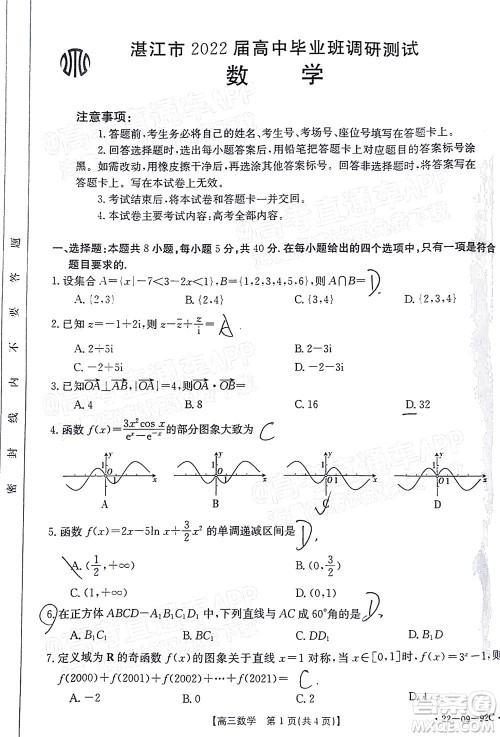 湛江市 2022 届高中毕业班调研测试
数 学
注意事项:
1. 答题前,考生务必将自己的姓名、考生号、考场号、座位号填写在答题卡上。
2. 回答选择题时,选出每小题答案后,用铅笔把答题卡上对应题目的答案标号涂黑。
如需改动,用橡皮擦干净后,再选涂其他答案标号。回答非选择题时,将答案写在
答题卡上。写在本试卷上无效。
3. 考试结束后,将本试卷和答题卡一并交回。
4. 本试卷主要考试内容:高考全部内容。
一、选择题:本题共 8 小题,每小题 5 分,共 40 分。在每小题给出的四个选项中,只有一项是符合
题目要求的。
1. 设集合 A={x|-7<3-2x<1},B={1,2,3,4,5,6},则 A∩B= D
A. {2,3} B. {1,2,3,4} C. {3,4} D. {2,3,4}
2. 已知 z=-1+2i,则 z-z̄+z/i= A
A. 2+5i B. 2-5i C. -2+5i D. -2-5i
3. 已知 OA⊥AB,|OA|=4,则 OA·OB= C
A. 4 B. 8 C. 16 D. 32
4. 函数 f(x)=3x²cos x/(eˣ-e⁻ˣ) 的部分图象大致为 C
A B C D
5. 函数 f(x)=2x-5ln x+3/2x² 的单调递减区间是 D
A. (1/2,+∞) B.
C. (1,+∞) D. (0,1)
6. 在正方体 ABCD-A₁B₁C₁D₁ 中,下列直线与 AC 成 60°角的是 D
A. B₁C₁ B. BC C. DD₁ D. B₁C
7. 定义域为 R 的奇函数 f(x) 的图象关于直线 x=1 对称,当 x∈[0,1]时,f(x)=3ˣ-1,则
f(2000)+f(2001)+f(2002)+…+f(2021)= C
A. -2 B. 0 C. 2 D. 4
【高三数学 第 1 页(共 4 页)】
·22-09-92C·
密 封 线 内 不 要 答 题